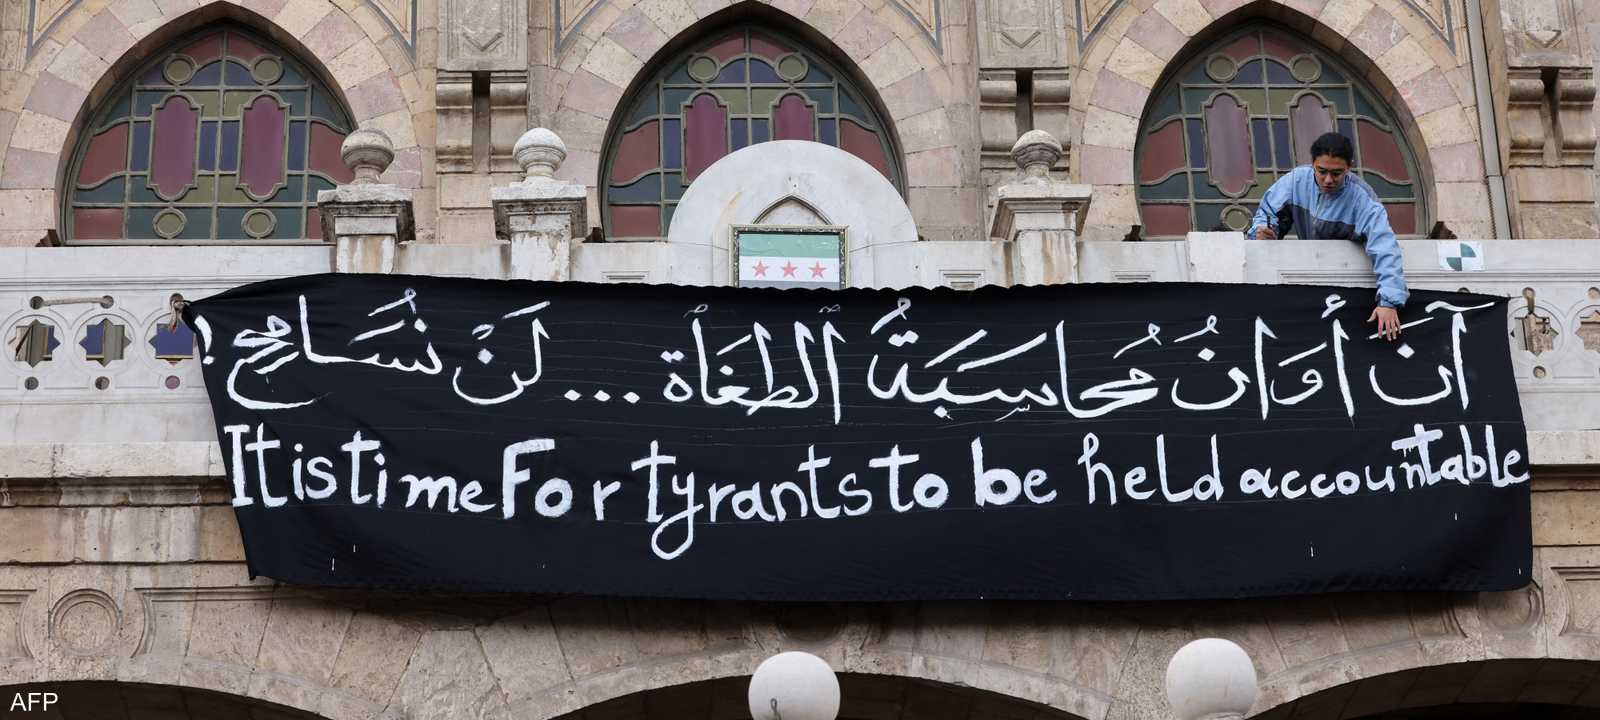 آنَ أَوَانُ مُحاسَبَةُ الطغَاة ... لَنْ نُسَامِح !
It is time For tyrants to be held accountable
AFP